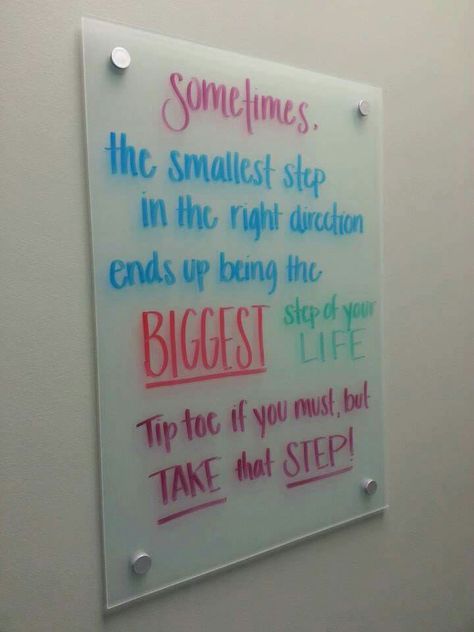 Sometimes,
the smallest step
in the right direction
ends up being the
BIGGEST step of your
LIFE
Tip toe if you must, but
TAKE that STEP!